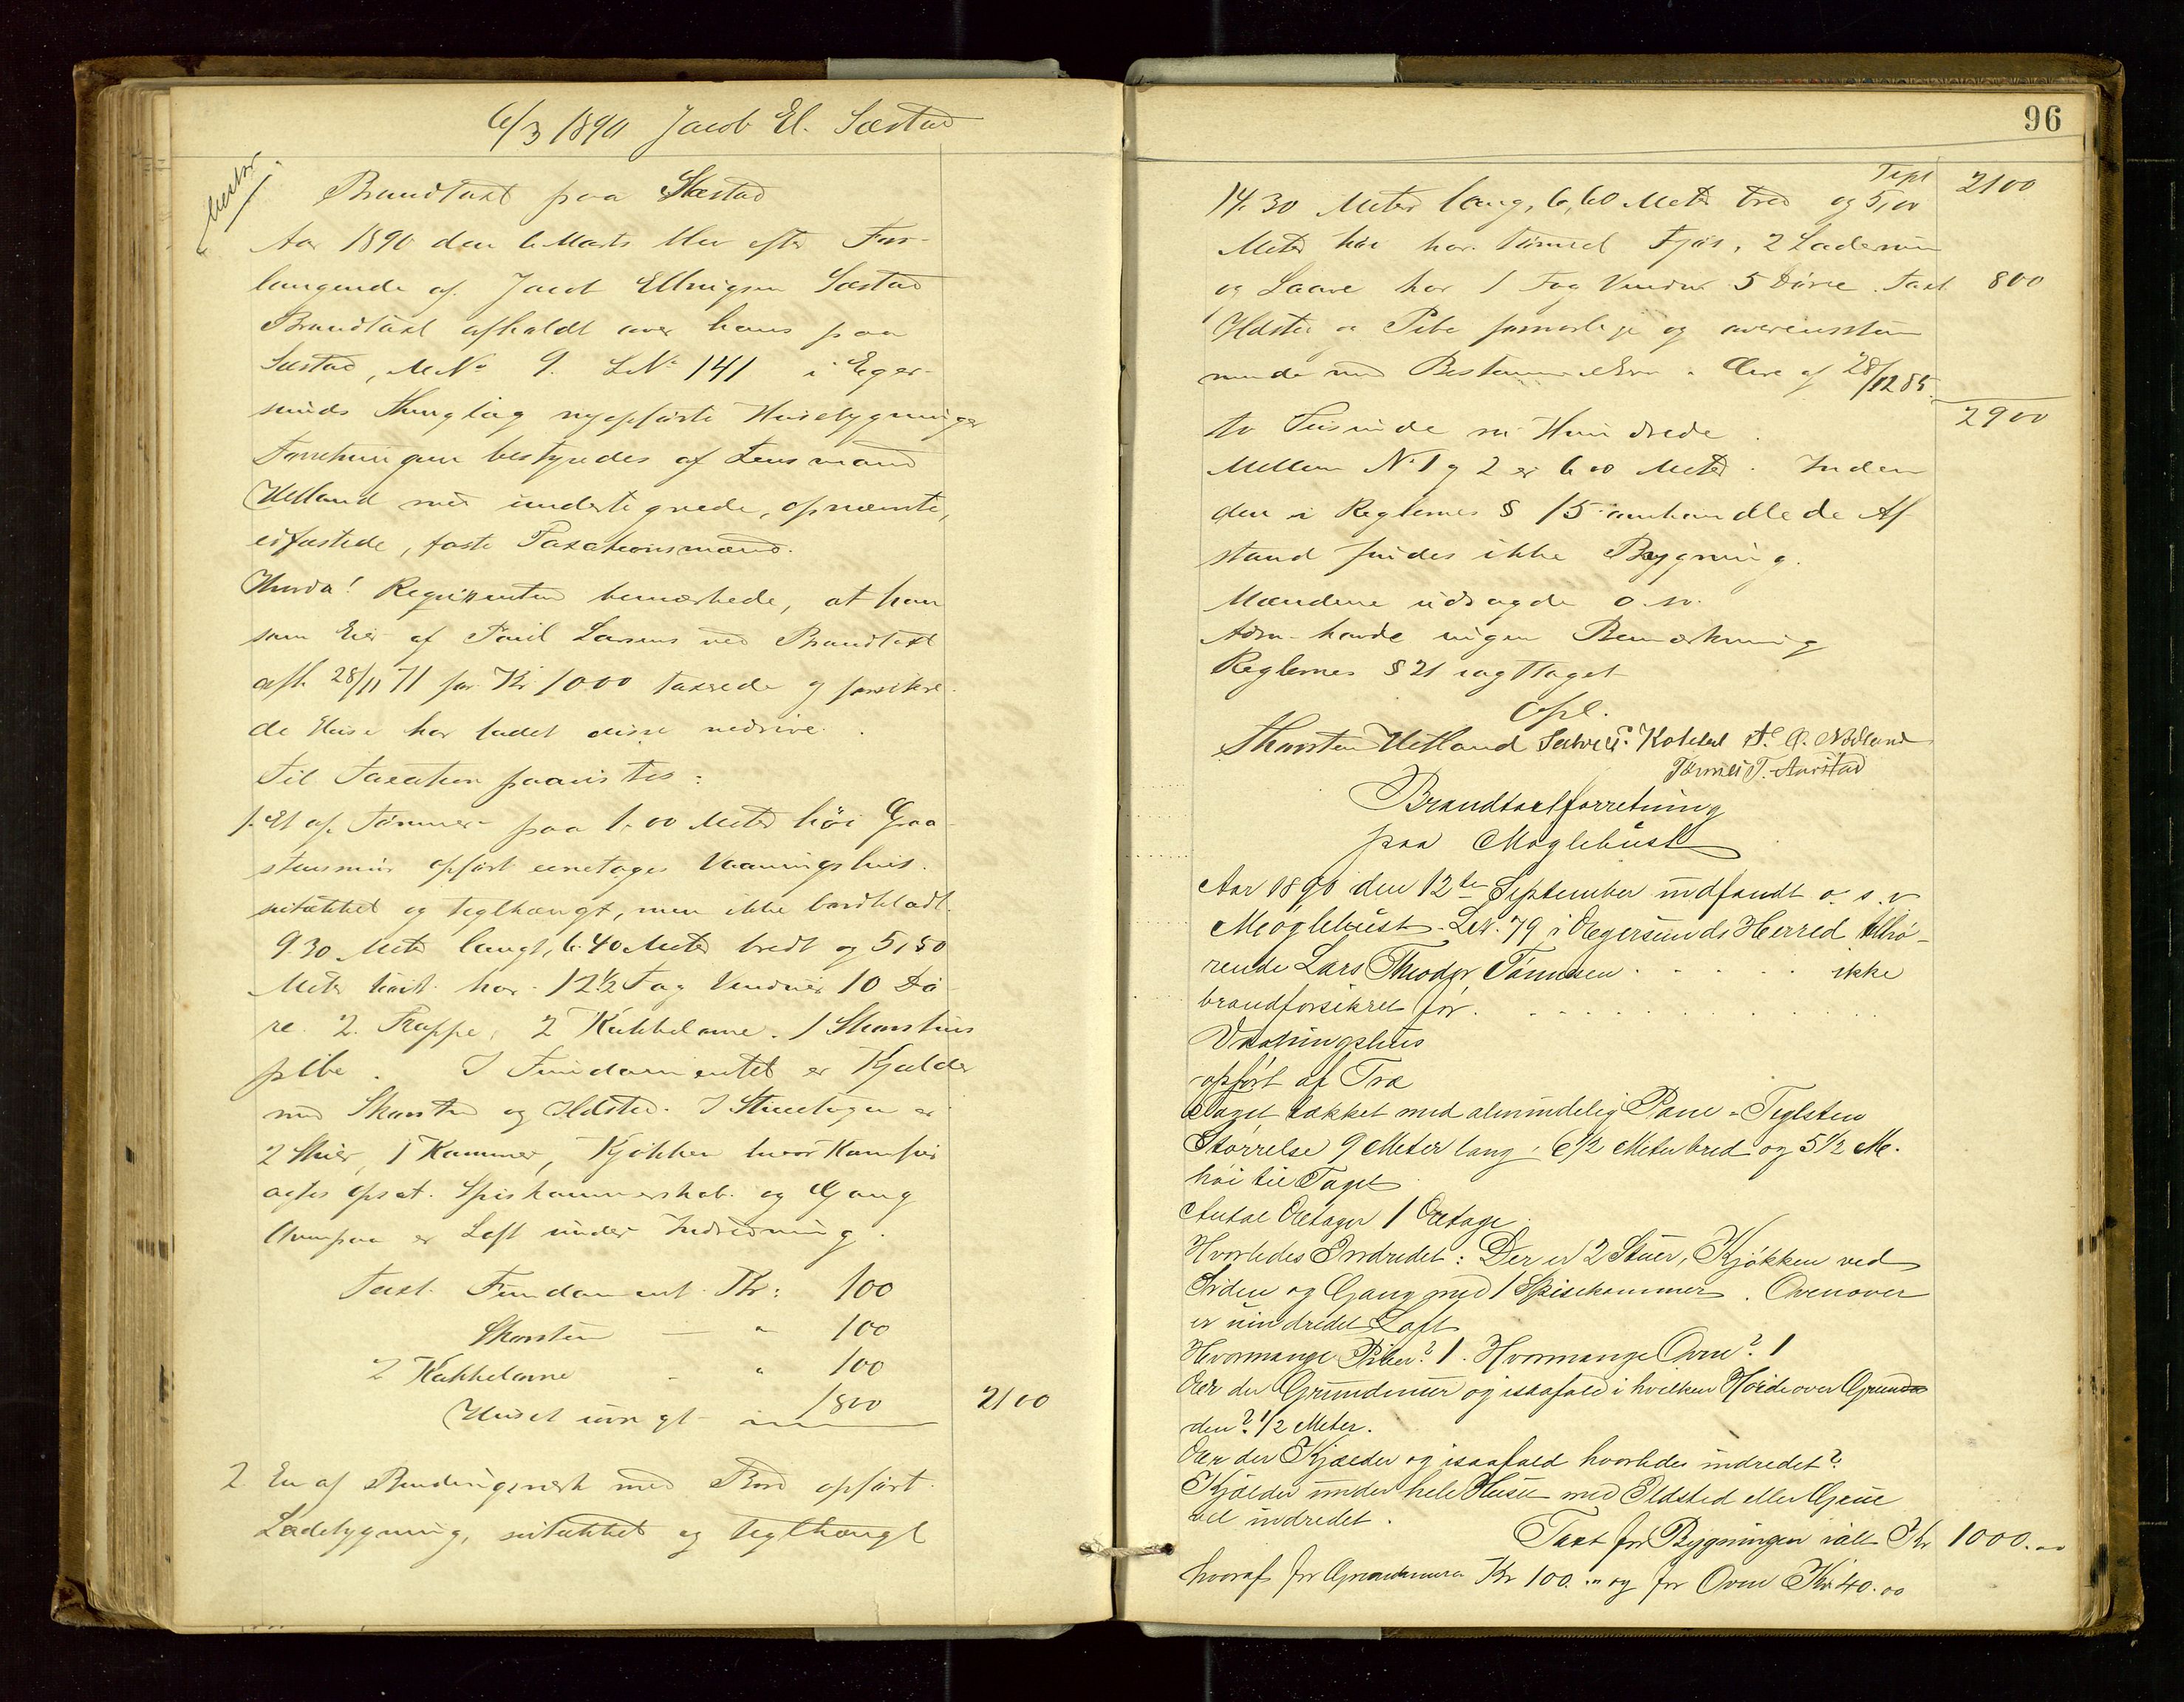 6/3 1890 Jacob El. Sæstad
Brandtaxt paa Sæstad
Aar 1890 den 6 Marts blev efter For-
langende af Jacob Elling­sen Sæstad
Brandtaxt afholdt over hans paa
Sæstad, MNo 9. LNo 141 i Eger-
sunds Thinglag nyopførte Husebygninger
Forretningen bestyredes af Lensmand
Hetland med undertegnede, opnævnte,
edfæstede, faste Taxationsmænd.
Hvorda! Requirenten bemærkede, at han
som Eier af Lasens ved Brandtaxt
afh. 28/11 71 for Kr 1000 taxerede og forsikre-
de Huse har ladet disse nedrive.
Til Taxation paavistes:
1. Et af Tømmer paa 1.00 Meter høi Graa-
stensmur opført eenetages Vaaningshus.
sutækket og teglhængt, men ikke bordklædt.
9.30 Meter langt, 6.40 Meter bredt og 5,50
Meter høit. har 12½ Fag Vinduer 10 Dø-
re. 2. Trappe, 2 Kakkelovne. 1 Skorstens
pibe. I Fundamentet er Kjelder
med Skorsten og Ildsted. I Stueetagen er
2 Stuer, 1 Kammer, Kjøkken hvor Komfur
agtes opsat. Spiskammerskab. og Gang
Ovenpaa er Loft under Indredning.
Taxt. Fundament Kr: 100
Skorsten — " 100
2 Kakkelovne - " 100
Huset iøvrigt 1800 2100
2 En af Bindingsværk med Bord opført
Ladebygning, sutækket og teglhængt
96
Tspt 2100
14.30 Meter lang, 6,60 Meter bred og 5,00
Meter høi har tømret Fjøs, 2 Laderum
og Laave har 1 Fag Vindue 5 Døre. Taxt 800
Ildsted og Pibe forsvarlige og overensstem
mende med Bestemmelserne i Love af 28/12 85.
to Tusinde ni Hundrede. 2900
Mellem No 1 og 2 er 6 00 Meter. Inden
den i Reglernes § 15 omhandlede Af-
stand findes ikke Bygning.
Mændene udsagde o.sv.
Adm. havde ingen Bemærkning
Reglernes § 21 iagttaget
Opl.
Thorsten Hetland Kolstad A. O. Nodland
Tønnes T. Aarstad
Brandtaxtforretning
paa Møglebust
Aar 1890 den 12te September indfandt o. s. v
Møglebust LN. 79 i Egersunds Herred tilhø-
rende Lars Theodor Tønnesen . . . . . ikke
brandforsikret før. . . . . . . . . .
Vaaningshus
opført af Træ
Taget tækket med almindelig Pane-Teglsten
Størrelse 9 Meter lang, 6½ Meter bred og 5½ M.
høi til Taget
Antal Etager 1 Etage.
Hvorledes Indredet: Der er 2 Stuer, Kjøkken ved
Siden og Gang med 1 Spisekammer. Ovenover
er uindredet Loft
Hvormange Piber? 1. Hvormange Ovne? 1
Er der Grundmur og isaafald i hvilken Høide over Grun
den? ½ Meter.
Er der Kjælder og isaafald hvorledes indredet?
Kjælder under hele Huset med Ildsted eller Grue
vel indredet.
Taxt for Bygningen ialt Kr 1000.00
hvoraf for Grundmuren Kr 100.00 og for Ovne Kr 40.00